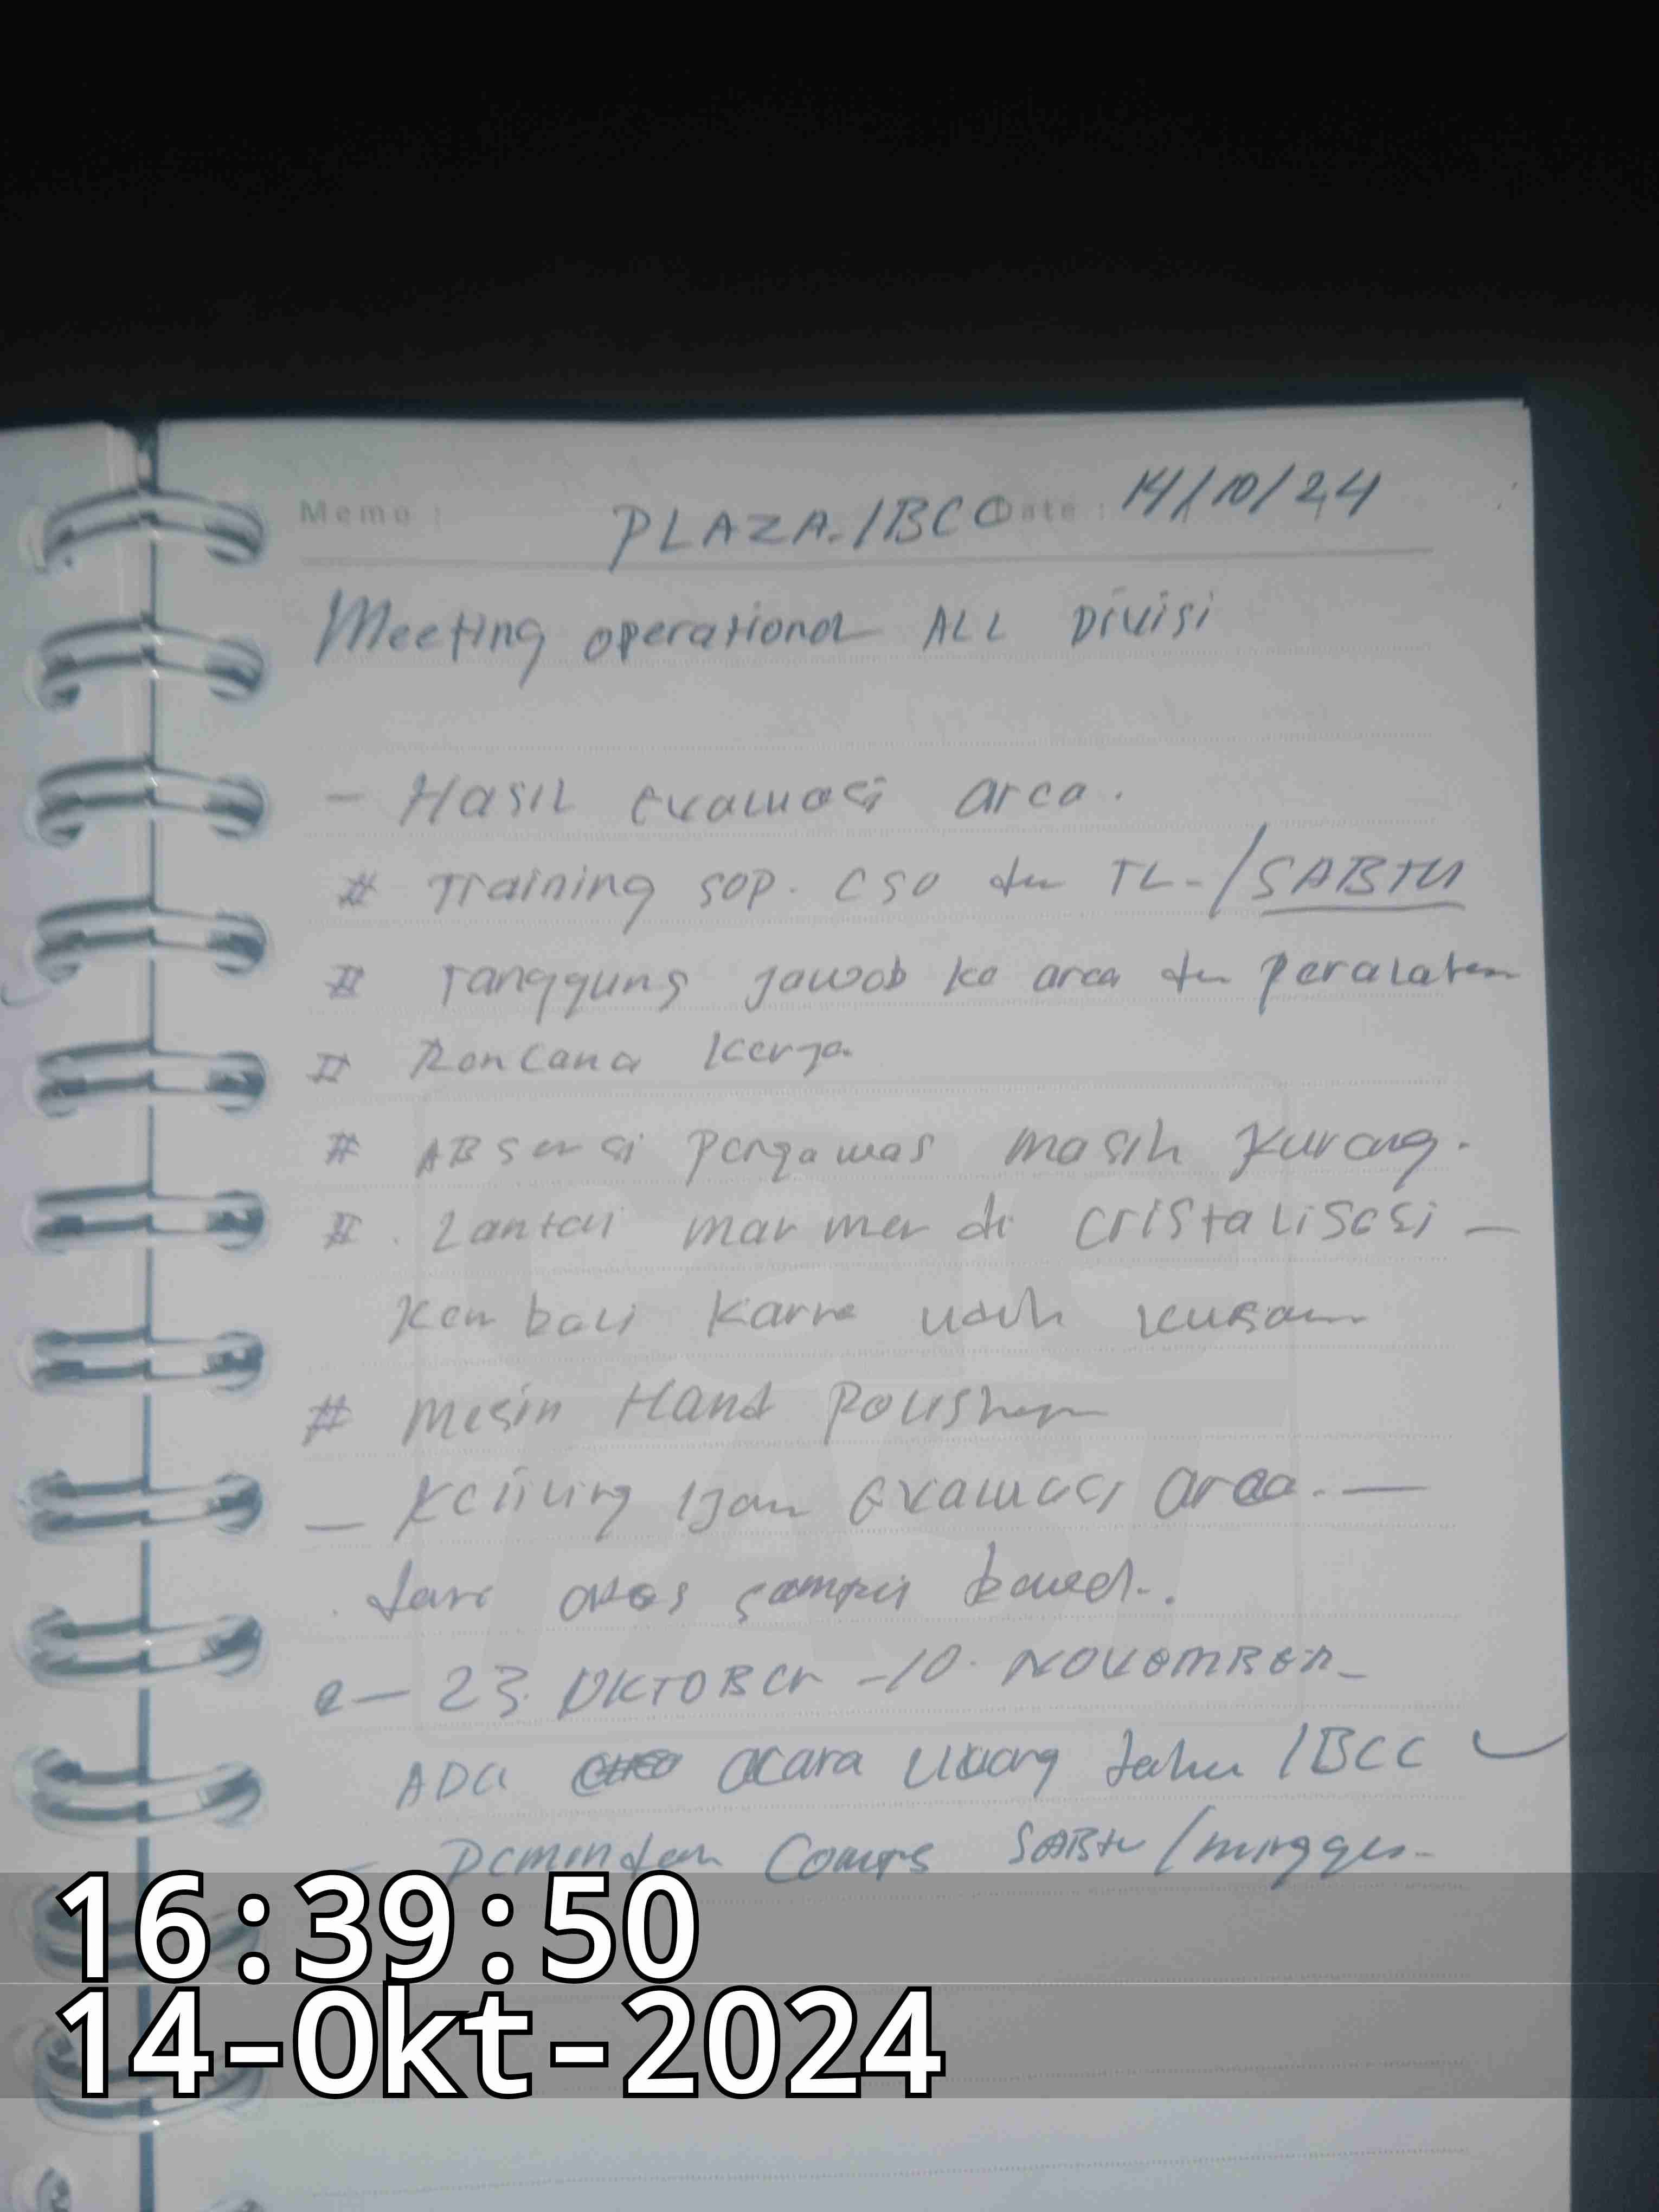 Memo :
PLAZA. IBCC Date : 14/10/24
Meeting operational ALL Divisi
- Hasil evaluasi area.
# Training SOP. CSO dn TL - / SABTU
# Tanggung Jawab ke area dn peralatan
# Rencana Kerja
# ABsensi pengawas masih kurang.
# . Lantai mar mer di cristalisasi -
Kembali karna udah kusam
# Mesin Hand Polisher
- Keliling evaluasi area. -
dari atas sampai bawah.
- 23. OKTOBER - 10. NOVEMBER -
ADA acara Ulang tahun IBCC
- SABtu / minggu -
16:39:50
14-Okt-2024